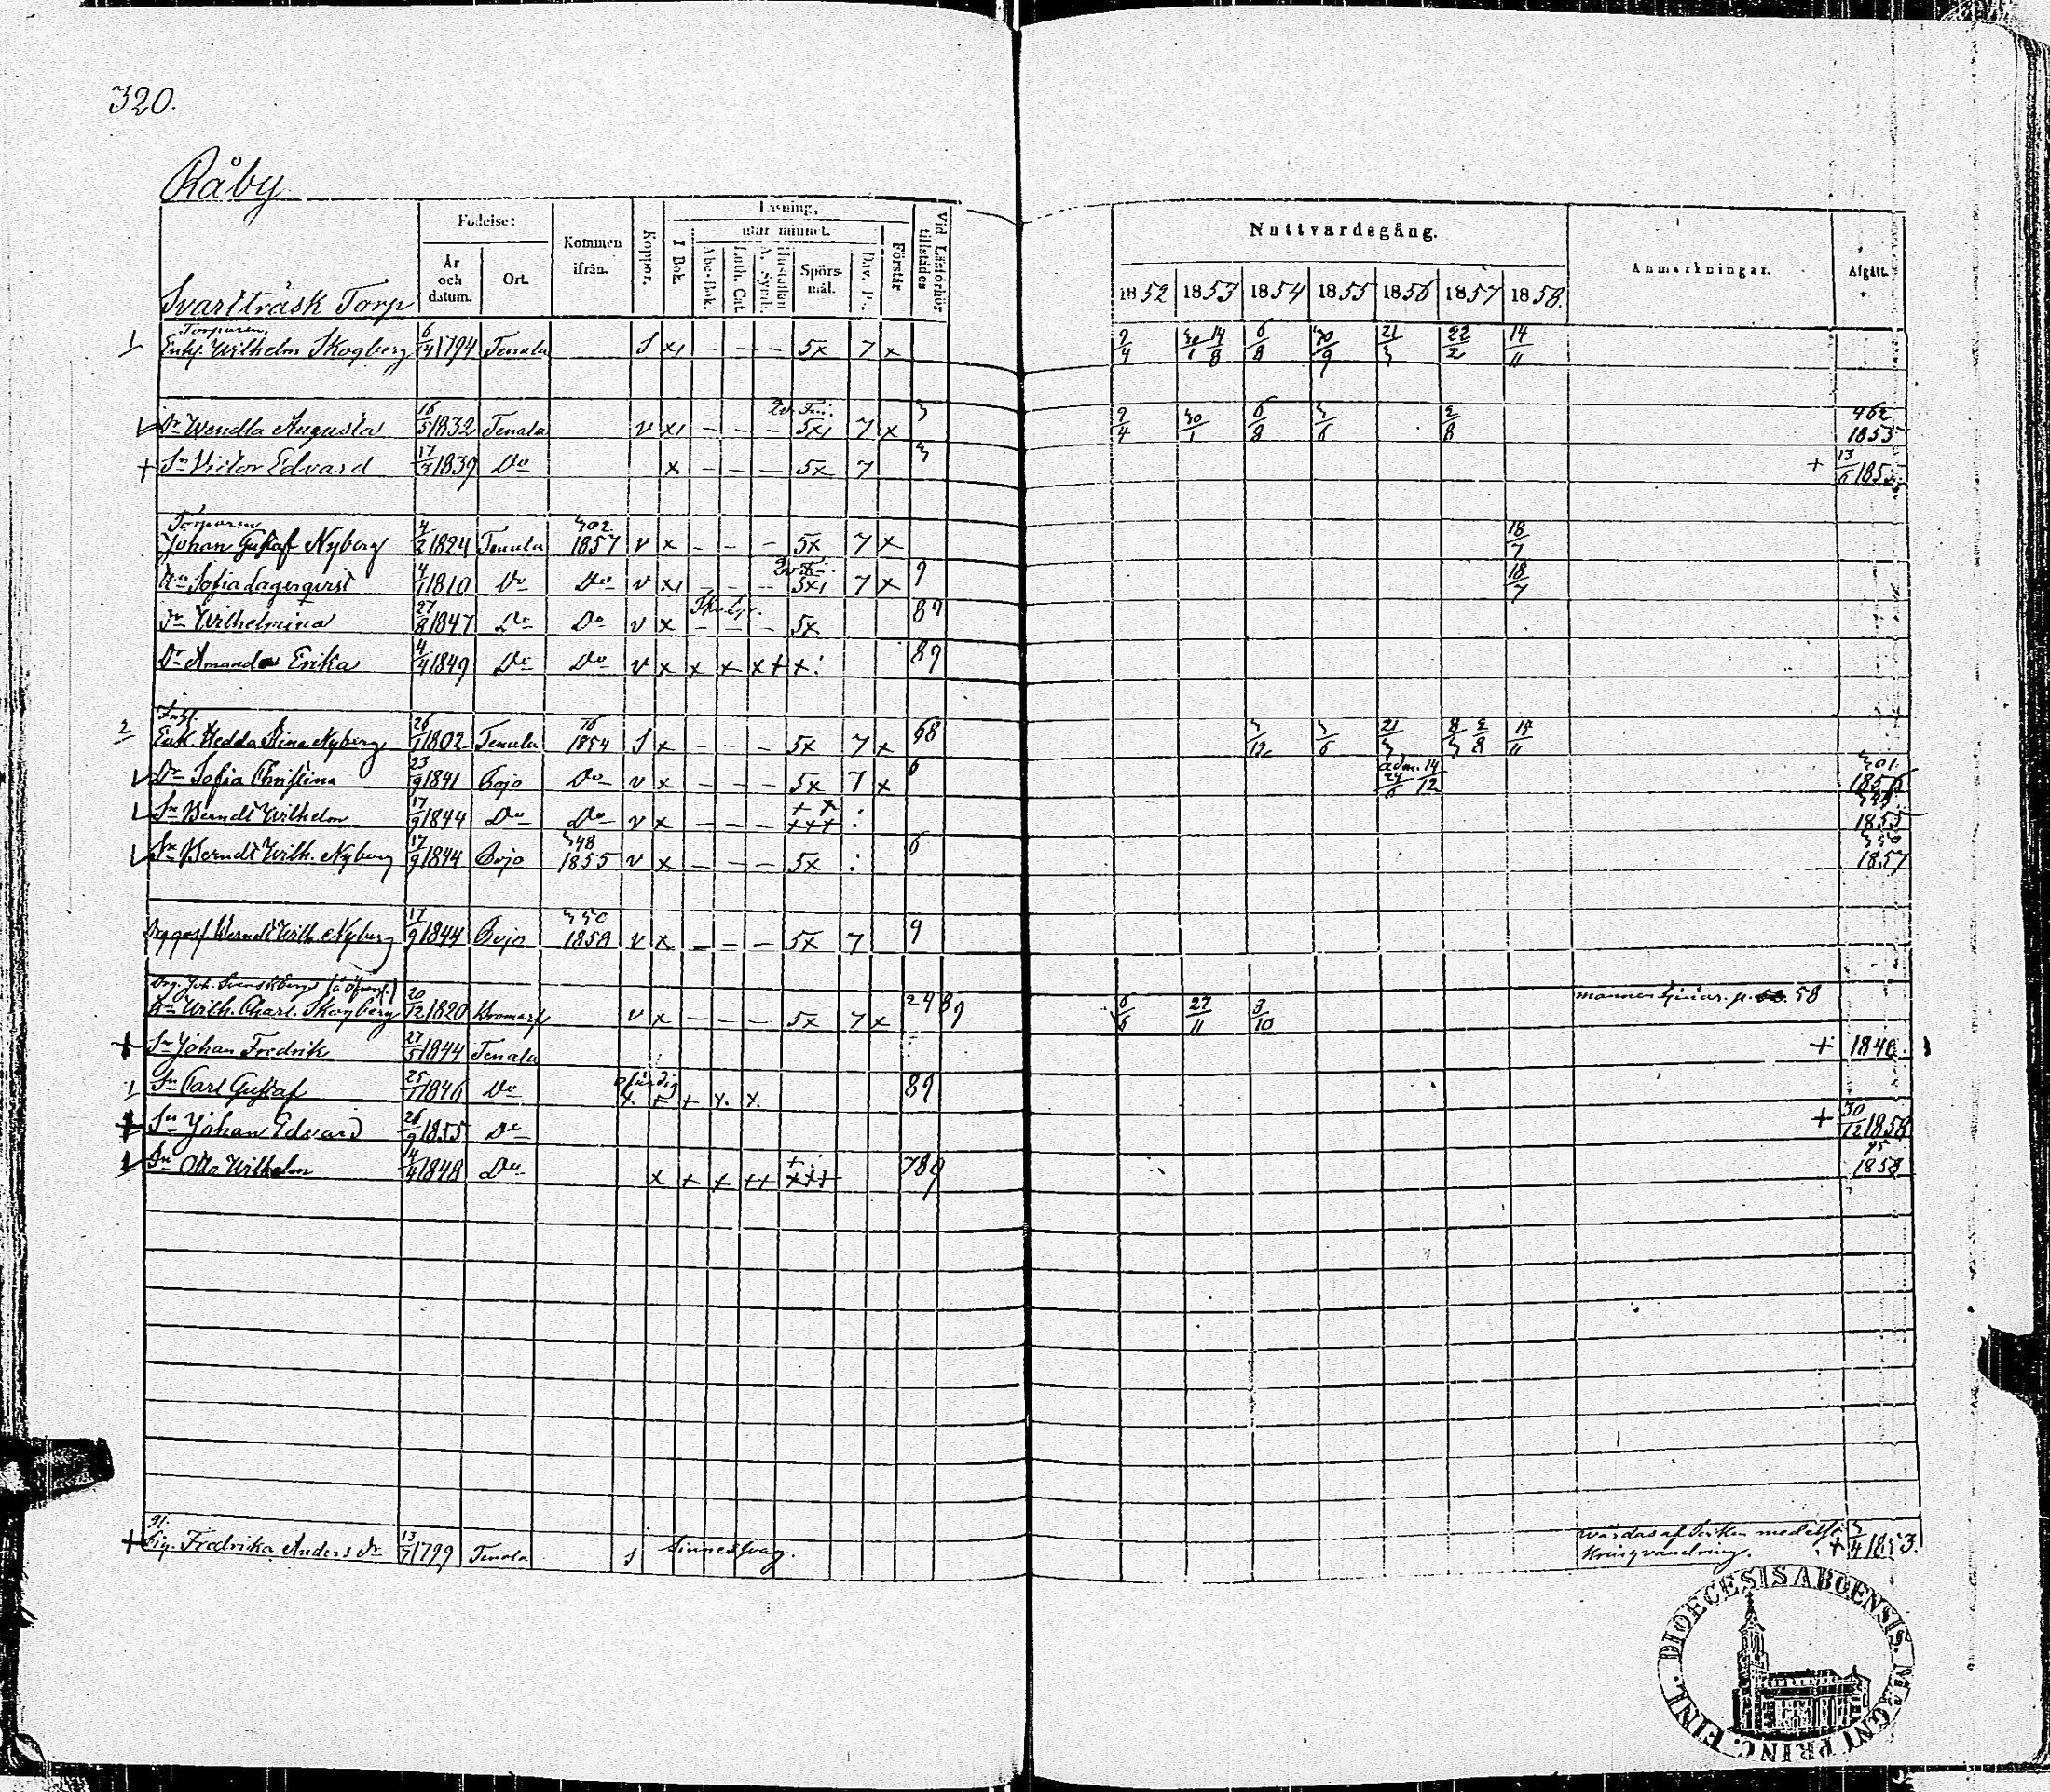 320.
Råby
Svartträsk Torp
Födelse:
År och datum.
Ort.
Kommen ifrån.
Koppor.
Läsning,
I Bok.
utar minnet.
Abc-Bok.
Luth. Cat.
Hustaflan A. Symb.
Spörsmål.
Dav. Ps.
Förstår
Vid Läsförhör tillstädes
Nattvardsgång.
1852 1853 1854 1855 1856 1857 1858.
Anmärkningar.
Afgått.
Torparen,
1 Enkl. Wilhelm Skogberg 6/4 1794 Tenala S x1 – – – 5x 7 x 9/4 30/1 14/8 6/8 30/9 21/3 22/2 14/11
Dr Wendla Augusta 16/5 1832 Tenala v x1 – – – 5x1 7 x 3 9/4 30/1 6/8 3/6 2/8 462 1855
+ Sn Victor Edvard 17/7 1839 Do x – – – 5x 7 3 + 13/6 185
Torparen
Johan Gustaf Nyberg 4/2 1824 Tenala 302 1857 v x – – – 5x 7 x 18/7
Hn Sofia Lagerqvist 4/1 1810 Do Do v x1 – – – 5x1 7 x 9 18/7
Dr Wilhelmina 27/8 1847 Do Do v x – – – 5x 89
Dr Amanda Erika 4/4 1849 Do Do v x x + x + +: 89
2 Enk. Hedda Stina Nyberg 26/1 1802 Tenala 76 1854 S x – – – 5x 7 x 68 3/12 3/6 21/3 8/3 2/8 14/11
Dr Sofia Christina 23/9 1841 Pojo Do v x – – – 5x 7 x 6 adm. 24/6 14/12 301 1856
Sn Berndt Wilhelm 17/9 1844 Do Do v x – – – + x +++ : 1855
Sn Berndt Wilh. Nyberg 17/9 1844 Pojo 348 1855 v x – – – 5x : 6 350 1857
Berndt Wilh. Nyberg 17/9 1844 Pojo 350 1858 v x – – – 5x 7 9
Drg. Joh. Svenskberg
Hn Wilh. Charl. Skogberg 20/12 1820 Kromarf v x – – – 5x 7 x 2489 6/6 27/11 3/10 mannen p. 58
+ Sn Johan Fredrik 27/5 1844 Tenala + 1846.
1 Sn Carl Gustaf 25/7 1846 Do ofärdig x. + + x. x. 89
+ Sn Johan Edvard 26/9 1855 Do + 30/12 1858
Sn Otto Wilhelm 14/4 1848 Do x + x ++ +++ 789 95 1858
+ Pig. Fredrika Anders dr 13/7 1799 Tenala S Sinnessvag. Vårdas af Socken medelst Kringvandring. + 3/4 1853.
FINL. DIOECESIS ABOENSIS. MAGNI PRINC.